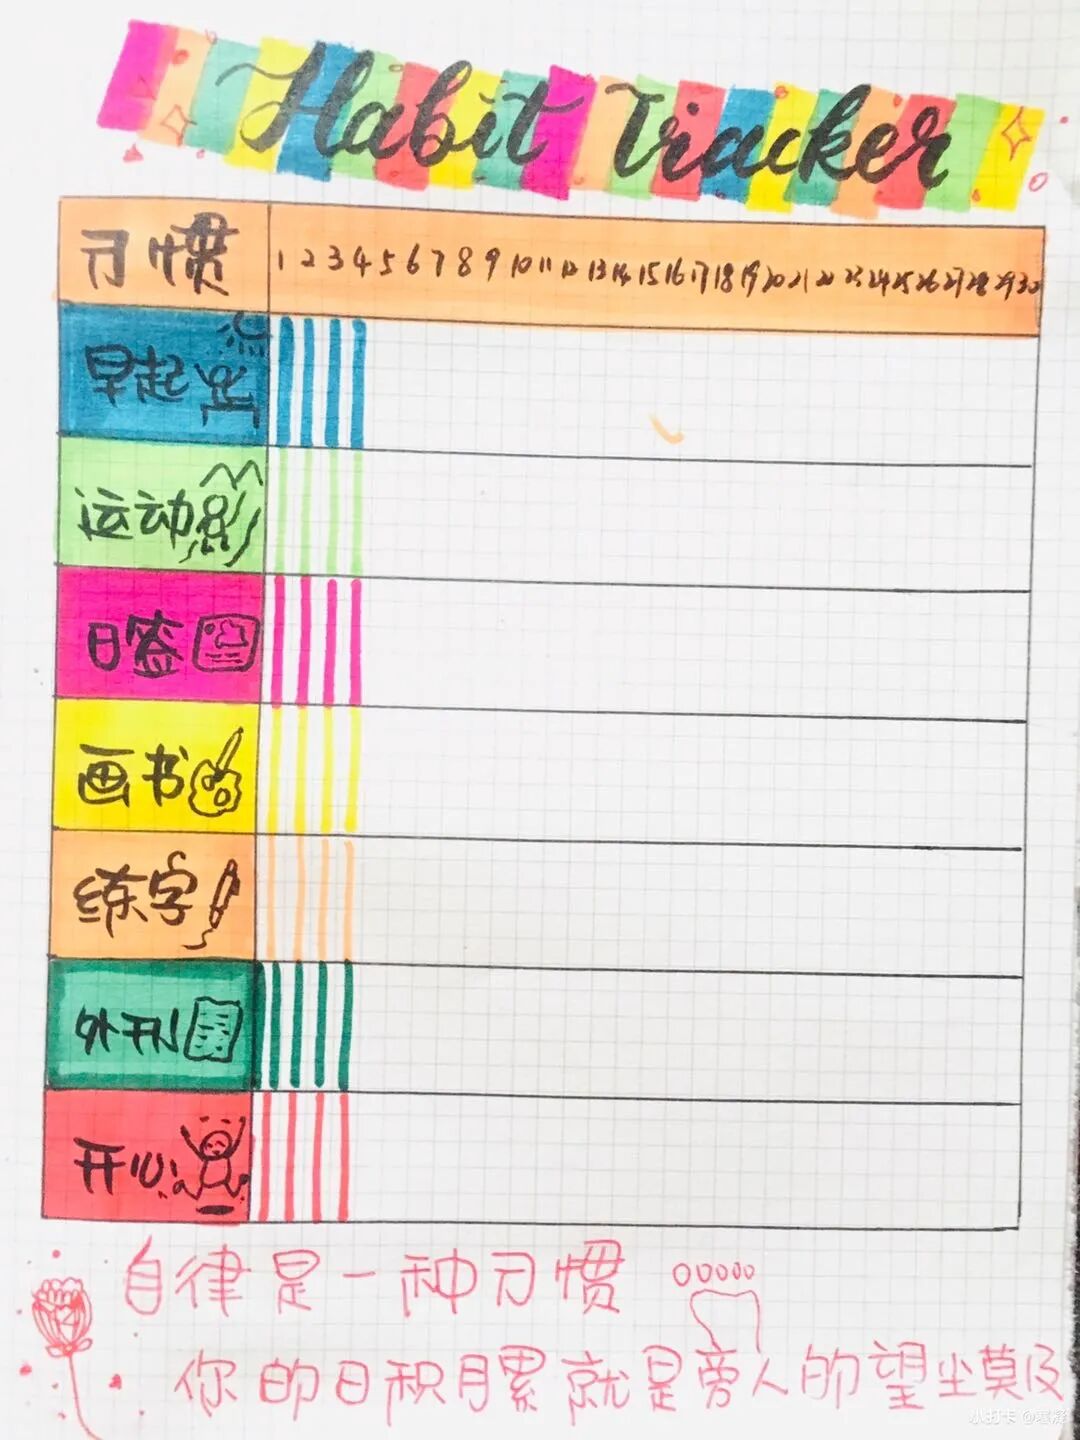 Habit Tracker
习惯 1 2 3 4 5 6 7 8 9 10 11 12 13 14 15 16 17 18 19 20 21 22 23 24 25 26 27 28 29 30
早起
运动
日签
画书
练字
外刊
开心
自律是一种习惯
你的日积月累就是旁人的望尘莫及
小打卡 @寒泽